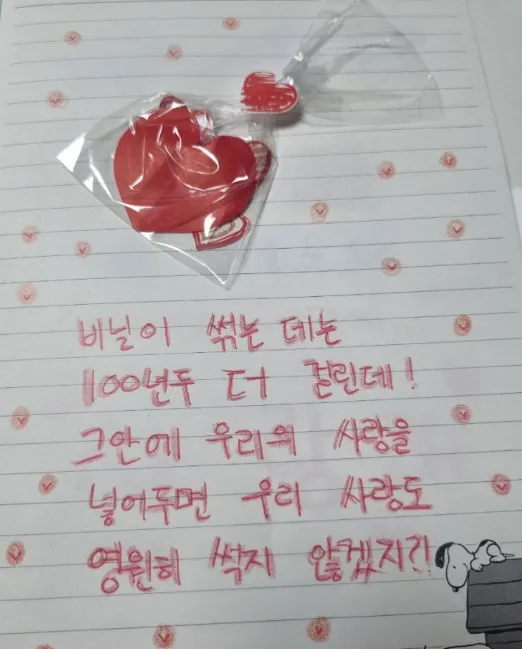 비닐이 썪는 데는
100년두 더 걸린데!
그안에 우리의 사랑을
넣어두면 우리 사랑도
영원히 썩지 않겠지?!